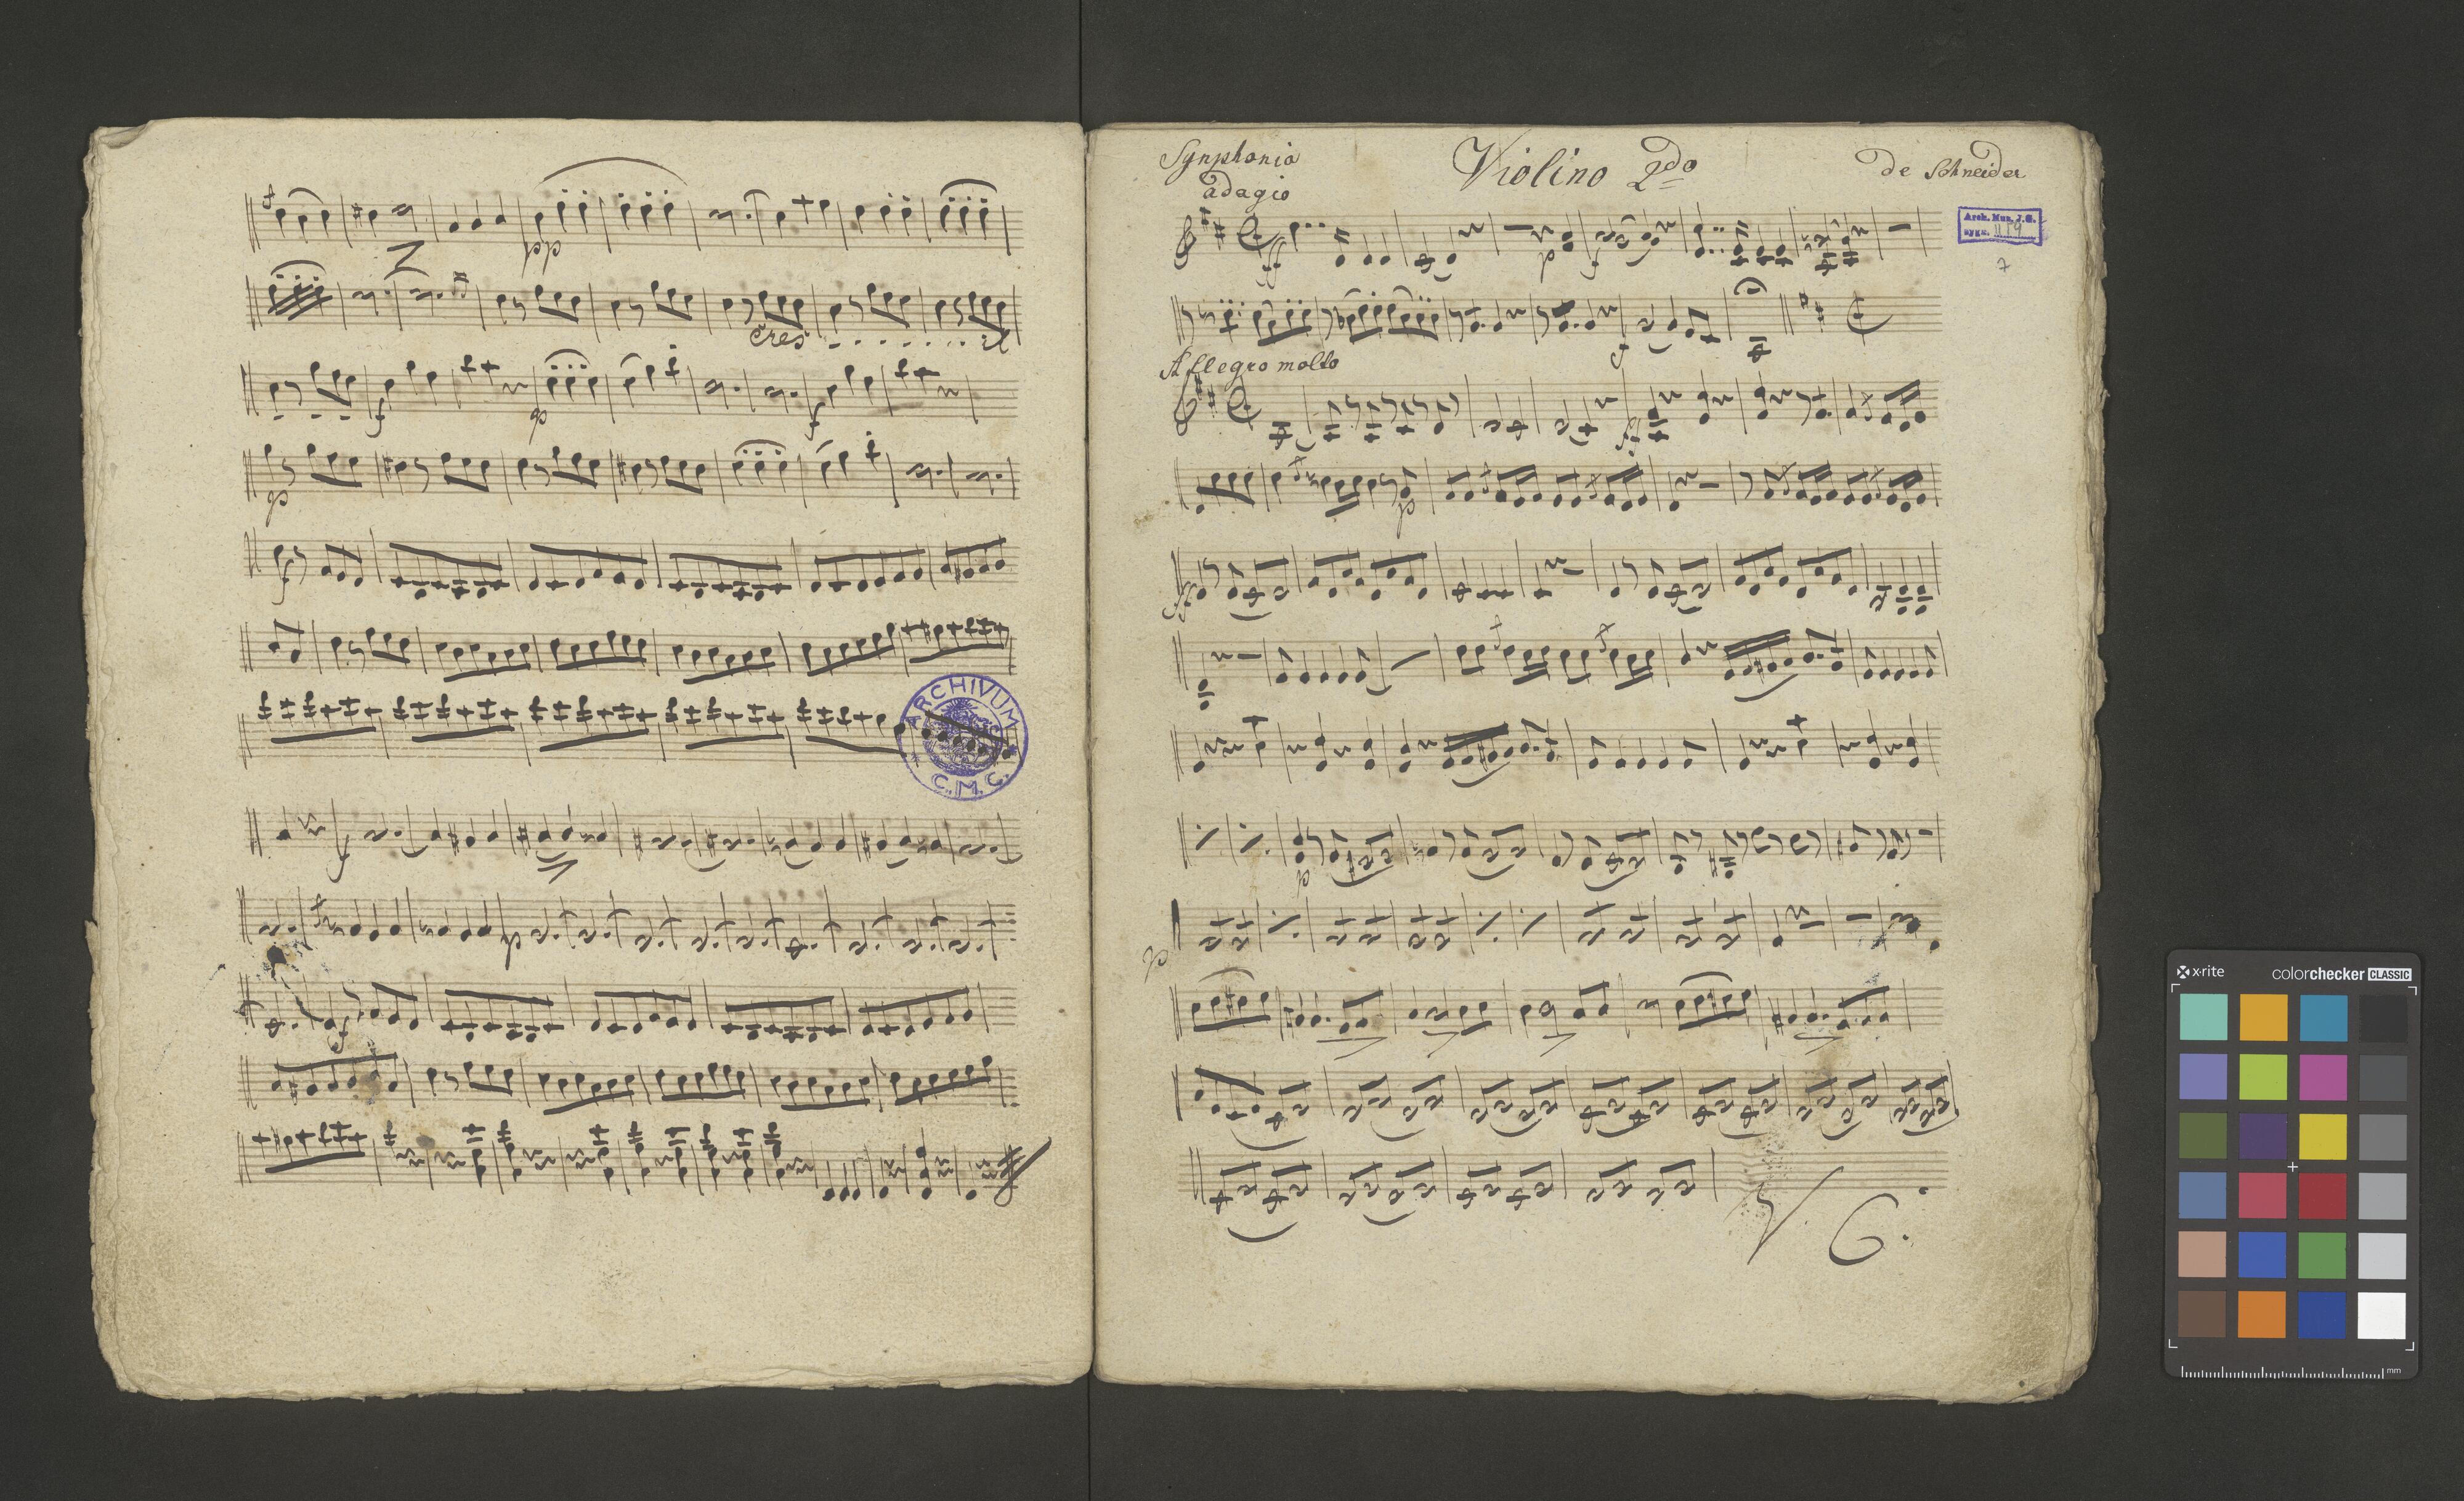 pp
cres
f
p
f
p
f
ARCHIVUM
C.M.C.
f
p
f
Synphonia
Violino 2do
de Schneider
adagio
Arch. Mun. J.G.
sygn. II 19
7
ff
p
f
f
Allegro molto
p
ff
p
p
V
x-rite
colorchecker CLASSIC
mm